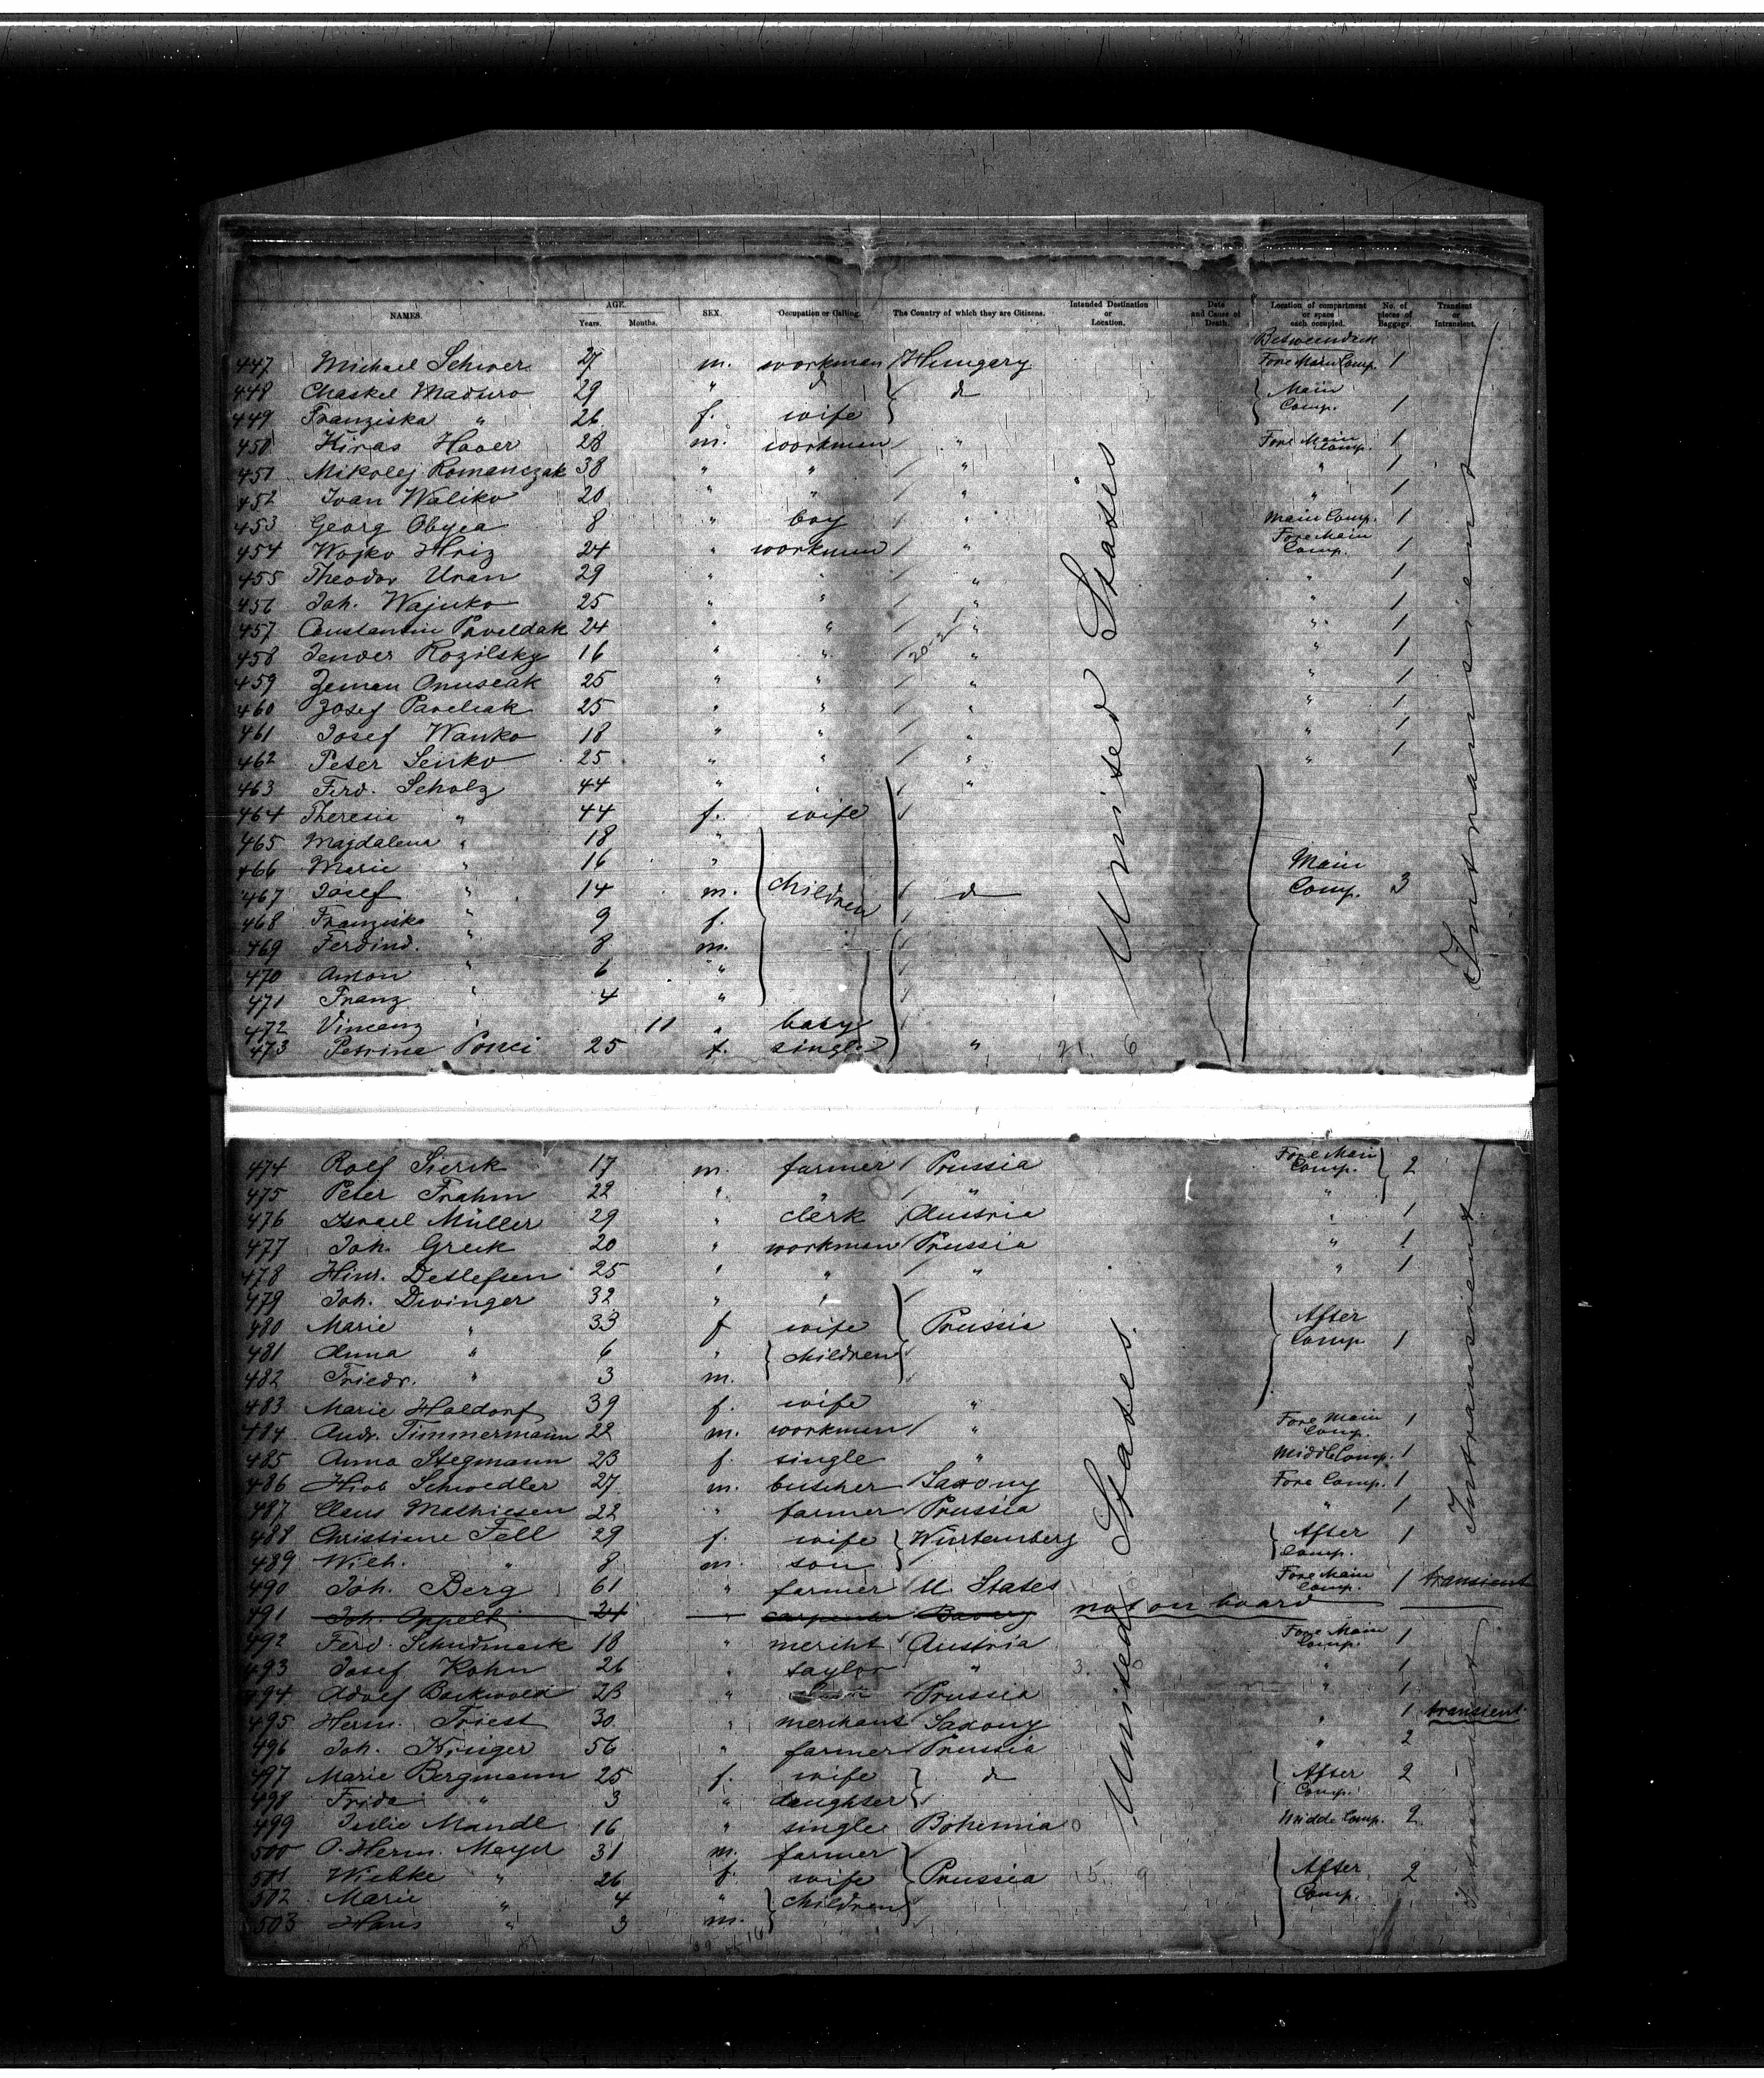 NAMES. AGE. Years. Months. SEX. Occupation or Calling. The Country of which they are Citizens. Intended Destination or Location. Date and Cause of Death. Location of compartment or space each occupied. No. of pieces of Baggage. Transient or Intransient.
Betweendeck
447 Michael Schwer 27 m. workman Hungary Fore Main Comp. 1
448 Chaskel Maduro 29 " d d Main Comp. 1
449 Franziska " 26 f. wife
450 Kiras Hooer 28 m. workman " Fore Main Comp. 1
451 Mikolej Romanczak 38 " " " " 1
452 Ivan Waliko 20 " " " " 1
453 Georg Obyca 8 " boy " Main Comp. 1
454 Wojko Hriz 24 " workman " Fore Main Comp. 1
455 Theodor Uran 29 " " " " 1
456 Joh. Wajuko 25 " " " " 1
457 Constantin Paveldak 24 " " " " 1
458 Fender Rozilsky 16 " " " " 1
459 Zeman Onuscak 25 " " " " 1
460 Josef Pavelcak 25 " " " " 1
461 Josef Wanko 18 " " " " 1
462 Peter Senko 25 " " " " 1
463 Ferd. Scholz 44 " " "
464 Theresia " 44 f. wife
465 Magdalena " 18 "
466 Marie " 16 " Main
467 Josef " 14 m. children d Comp. 3
468 Franziska " 9 f.
469 Ferdind. " 8 m.
470 Anton " 6 "
471 Franz " 4 "
472 Vincenz " 11 " baby
473 Petrina 25 f. single "
United States
Intransient
474 Rolf Sierck 17 m. farmer Prussia Fore Main Comp. 2
475 Peter Frahm 22 " " " "
476 Israel Müller 29 " clerk Austria " 1
477 Joh. Greck 20 " workman Prussia " 1
478 Hinr. Detlefsen 25 " " " " 1
479 Joh. Dwinger 32 " "
480 Marie " 33 f wife Prussia After
481 Anna " 6 " children Comp 1
482 Friedr. " 3 m.
483 Marie Haldorf 39 f. wife "
484 Andr. Timmermann 22 m. workman " Fore Main Comp. 1
485 Anna Stegmann 23 f. single " Middle Comp. 1
486 Hiob Schwedler 27 m. butcher Saxony Fore Comp. 1
487 Claus Mathiesen 22 " farmer Prussia " 1
488 Christiane Fell 29 f. wife Wurtemberg After Comp. 1
489 Wilh. " 8 m. son
490 Joh. Berg 61 " farmer U. States Fore Main Comp. 1 transient
491 Joh. Appelt 24 " carpenter Bavery not on board
492 Ferd. Schudmack 18 " mercht Austria Fore Main Comp. 1
493 Josef Kohn 26 " taylor " " 1
494 Adolf 23 " Prussia " 1
495 Herm. Triest 30 " merchant Saxony " 1 transient
496 Joh. Krüger 56 " farmer Prussia " 2
497 Marie Bergmann 25 f. wife d After Comp. 2
498 Frida " 3 " daughter
499 Julie Mandl 16 " single Bohemia Midde Comp. 2
500 O. Herm. Meyer 31 m. farmer
501 Wiebke " 26 f. wife Prussia After 2
502 Marie " 4 " children Comp.
503 Hans " 3 m.
United States
Intransient
Intransient